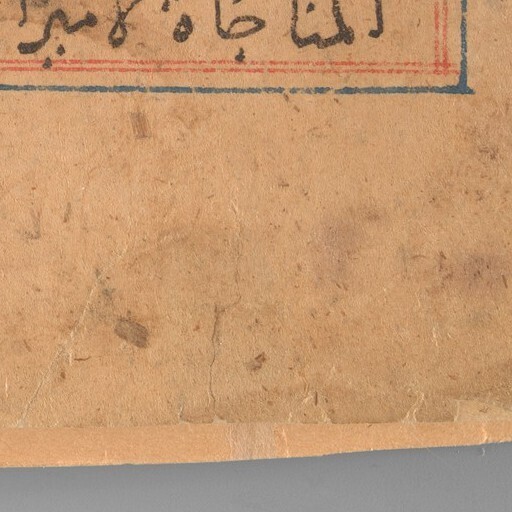 المناجاة لامير